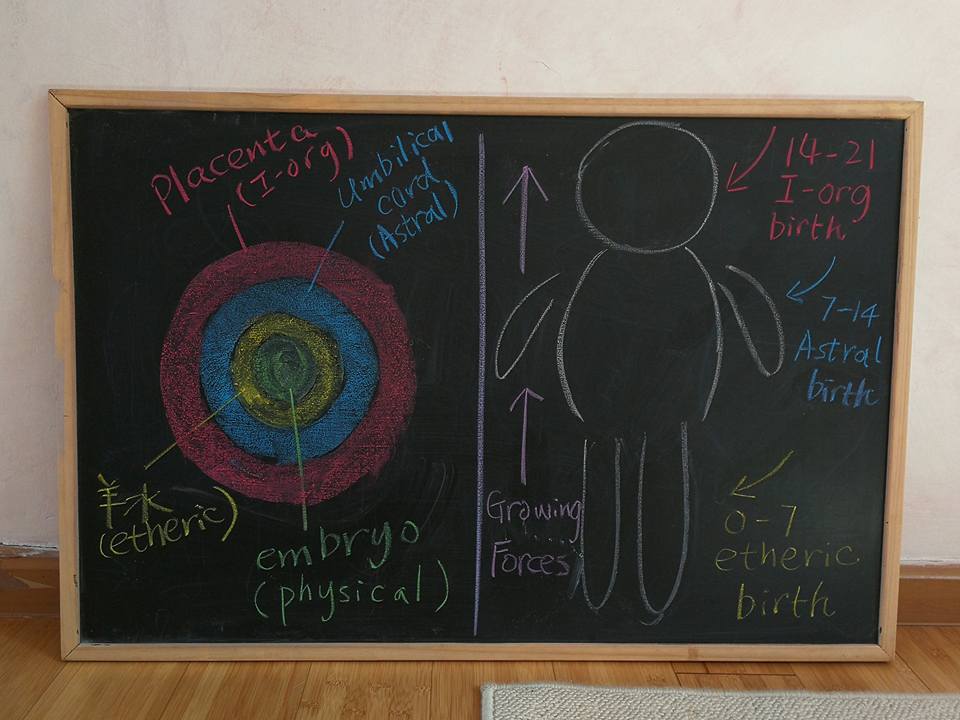 Placenta
(I-org)
Umbilical
cord
(Astral)
羊水
(etheric)
embryo
(physical)
Growing
Forces
14-21
I-org
birth
7-14
Astral
birth
0-7
etheric
birth